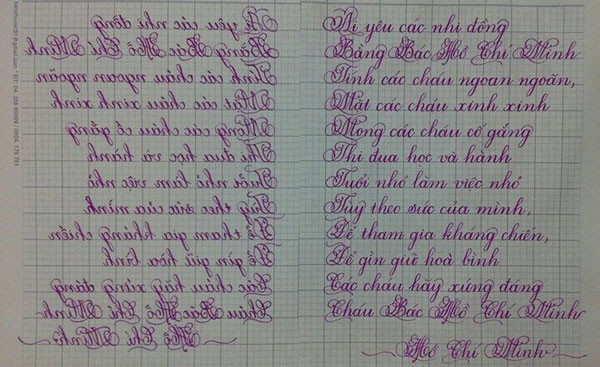 Ai yêu các nhi đồng
Bằng Bác Hồ Chí Minh
Tính các cháu ngoan ngoãn
Mặt các cháu xinh xinh
Mong các cháu cố gắng
Thi đua học và hành
Tuổi nhỏ làm việc nhỏ
Tùy theo sức của mình
Để tham gia kháng chiến
Để gìn giữ hòa bình
Các cháu hãy xứng đáng
Cháu Bác Hồ Chí Minh
Hồ Chí Minh
Ai yêu các nhi đồng
Bằng Bác Hồ Chí Minh
Tính các cháu ngoan ngoãn,
Mặt các cháu xinh xinh
Mong các cháu cố gắng
Thi đua học và hành
Tuổi nhỏ làm việc nhỏ
Tùy theo sức của mình,
Để tham gia kháng chiến,
Để gìn giữ hoà bình
Các cháu hãy xứng đáng
Cháu Bác Hồ Chí Minh
Hồ Chí Minh